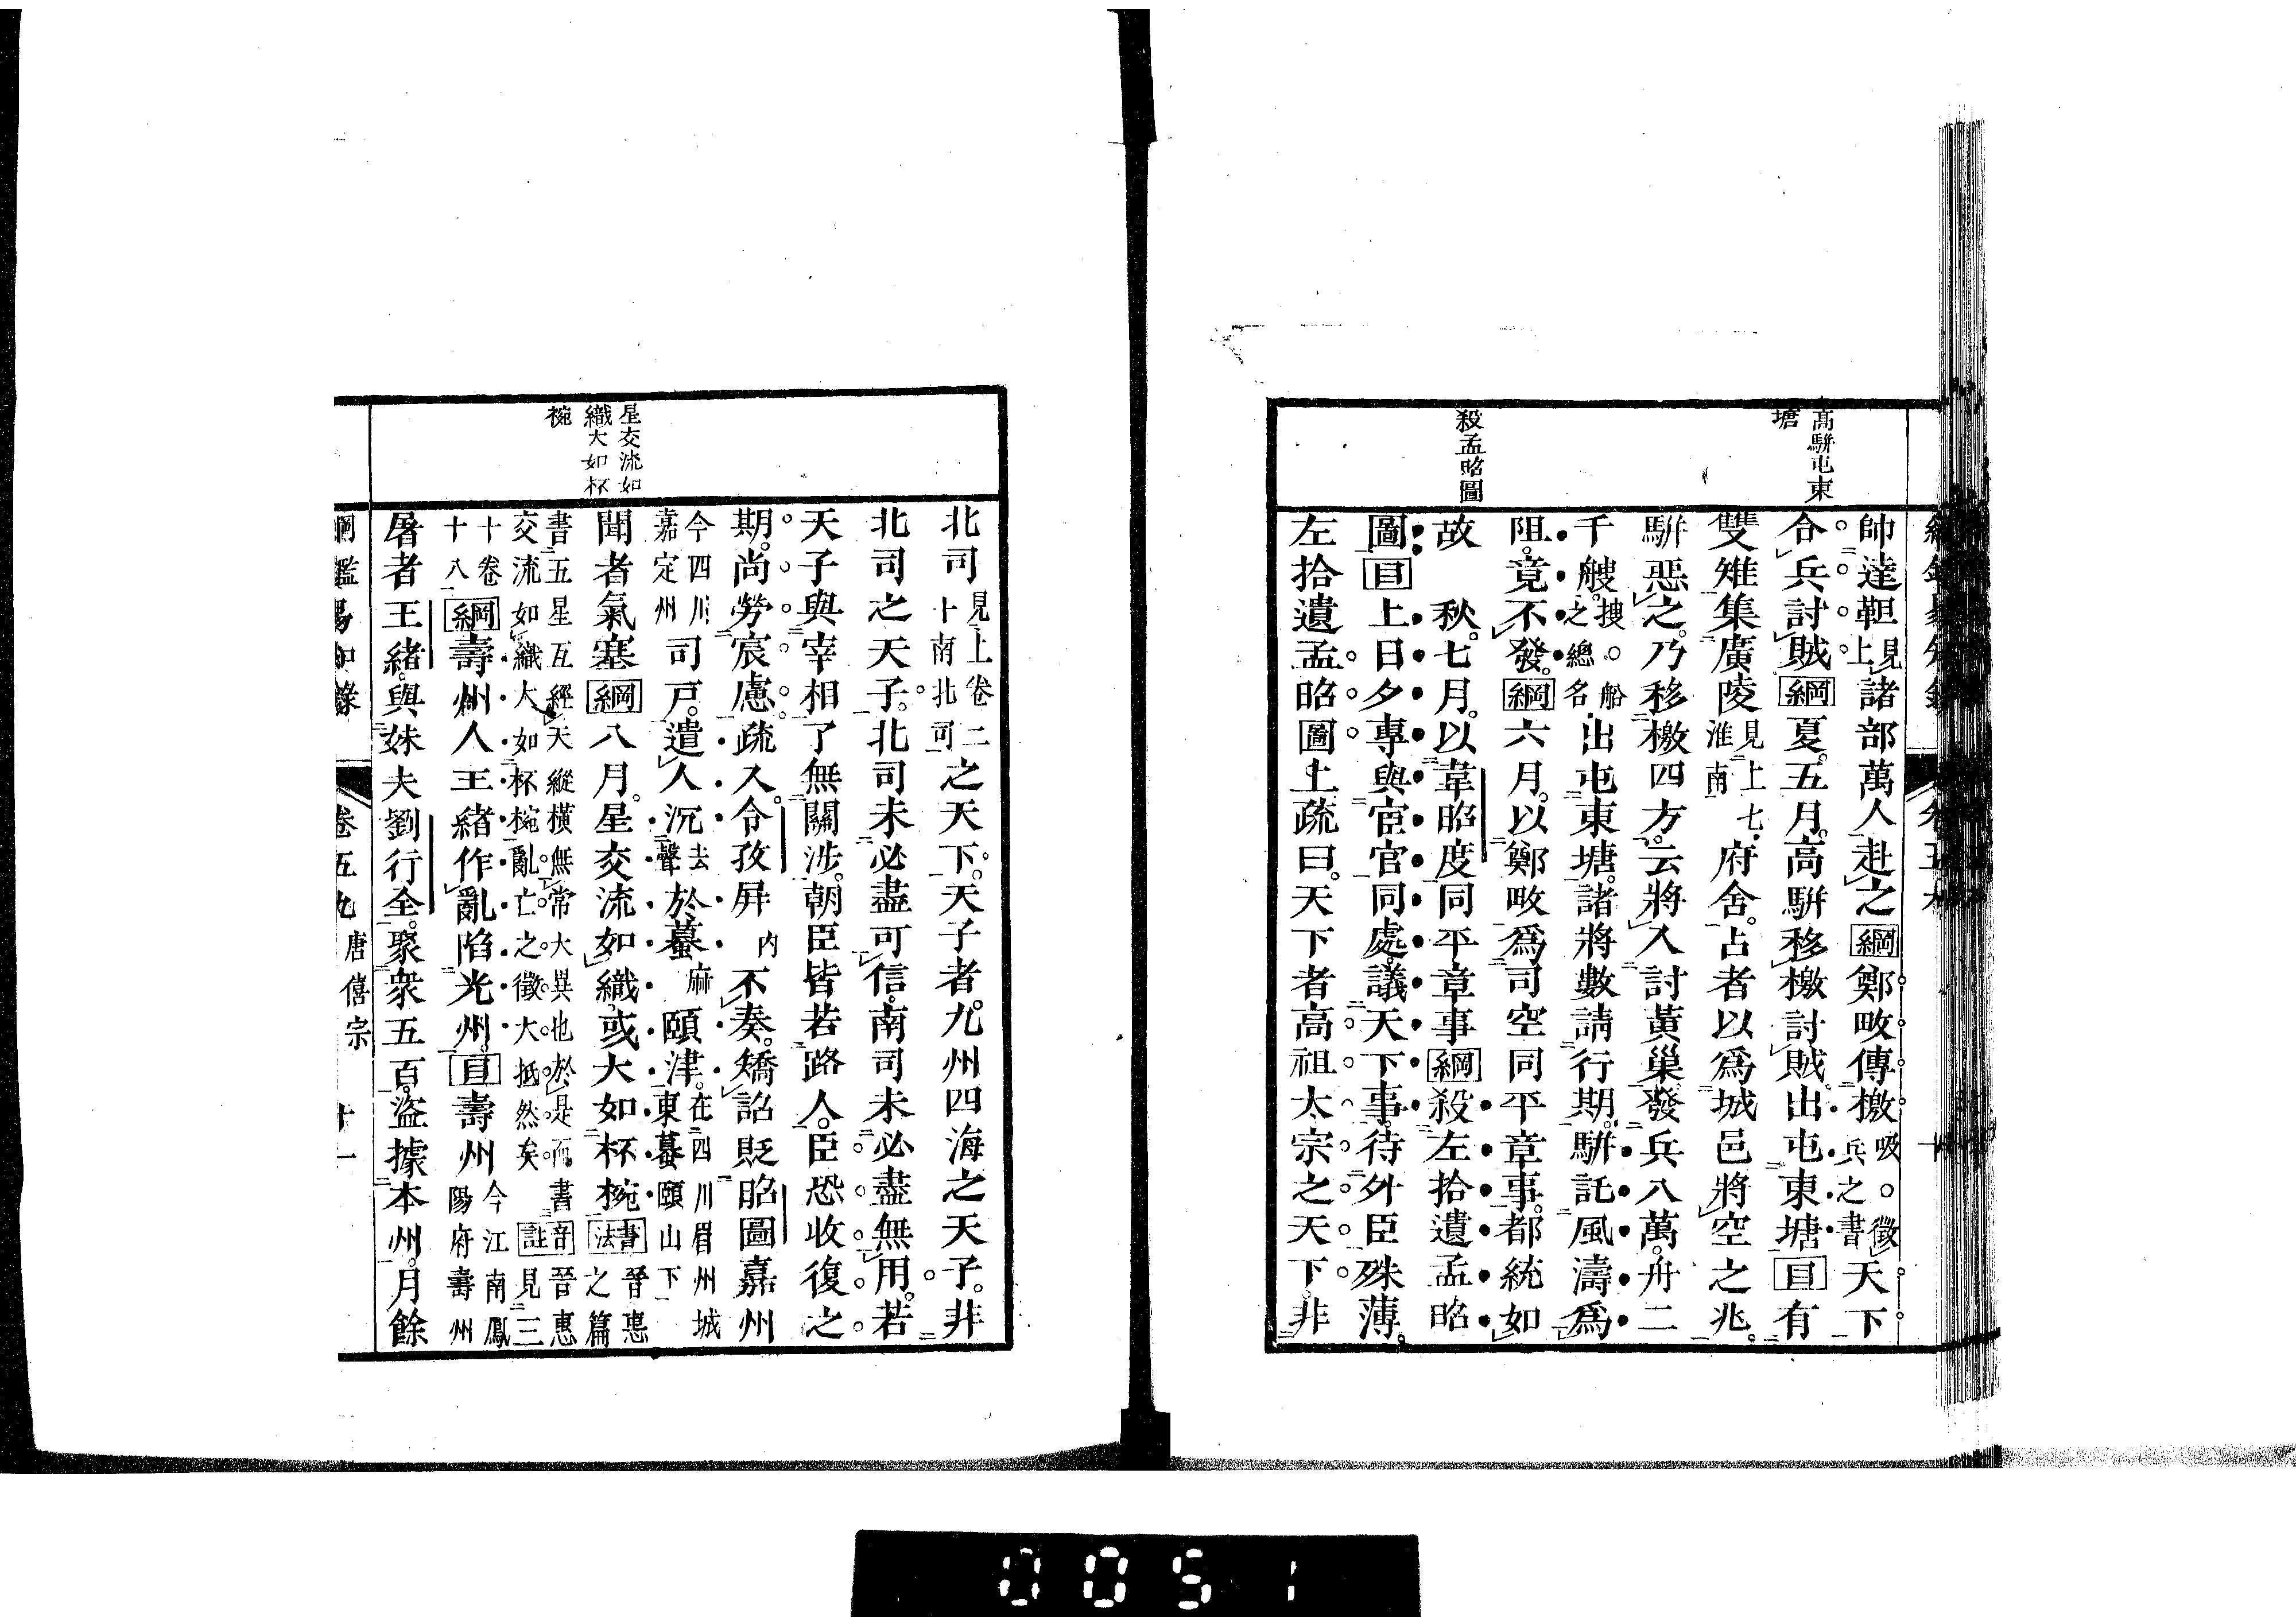 高駢屯東
塘
殺孟昭圖
帥達靼見上諸部萬人赴之綱鄭畋傳檄吸。徵兵之書天下
合兵討賊綱夏。五月。高駢移檄討賊出屯東塘目有
雙雉集廣陵見上七淮南府舍。占者以爲城邑將空之兆。
駢惡之。乃移檄四方。云將入討黃巢發兵八萬。舟二
千艘。搜。船之總名出屯東塘。諸將數請行期。駢託風濤爲
阻。竟不發。綱六月。以鄭畋爲司空同平章事。都統如
故　秋。七月。以韋昭度同平章事綱殺左拾遺孟昭
圖目上日夕專與宦官同處。議天下事。待外臣殊薄。
左拾遺孟昭圖上疏曰。天下者高祖太宗之天下。非
星交流如
織大如杯
椀
北司見上卷二十南北司之天下。天子者。九州四海之天子。非
北司之天子。北司未必盡可信。南司未必盡無用。若
天子與宰相了無關涉。朝臣皆若路人。臣恐收復之
期。尚勞宸慮。疏入。令孜屏內不奏。矯詔貶昭圖嘉州
今四川嘉定州司戸。遣人沉去聲於蟇麻頤津。在四川眉州城東蟇頤山下
聞者氣塞綱八月。星交流如織。或大如杯椀書法晉惠之篇
書五星互經天縱橫無常大異也於是而書交流如織大如杯椀亂亡之徵大抵然矣音註晉惠見三
十卷十八綱壽州人王緒作亂陷光州。目壽州今江南鳳陽府壽州
屠者王緒。與妹夫劉行全。聚衆五百。盜據本州。月餘
綱鑑易知錄　卷五九　唐僖宗　十一
0051